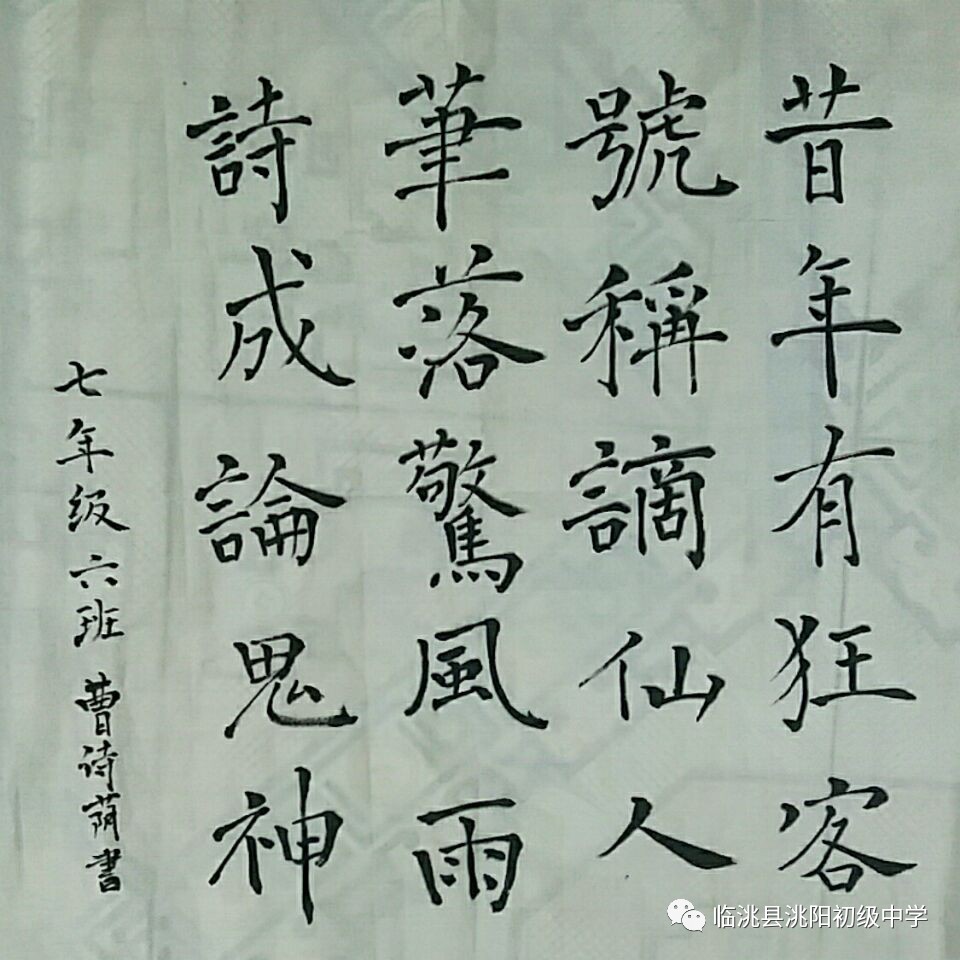 昔年有狂客
號稱謫仙人
筆落驚風雨
詩成論鬼神
七年级六班 曹诗荫書
临洮县洮阳初级中学